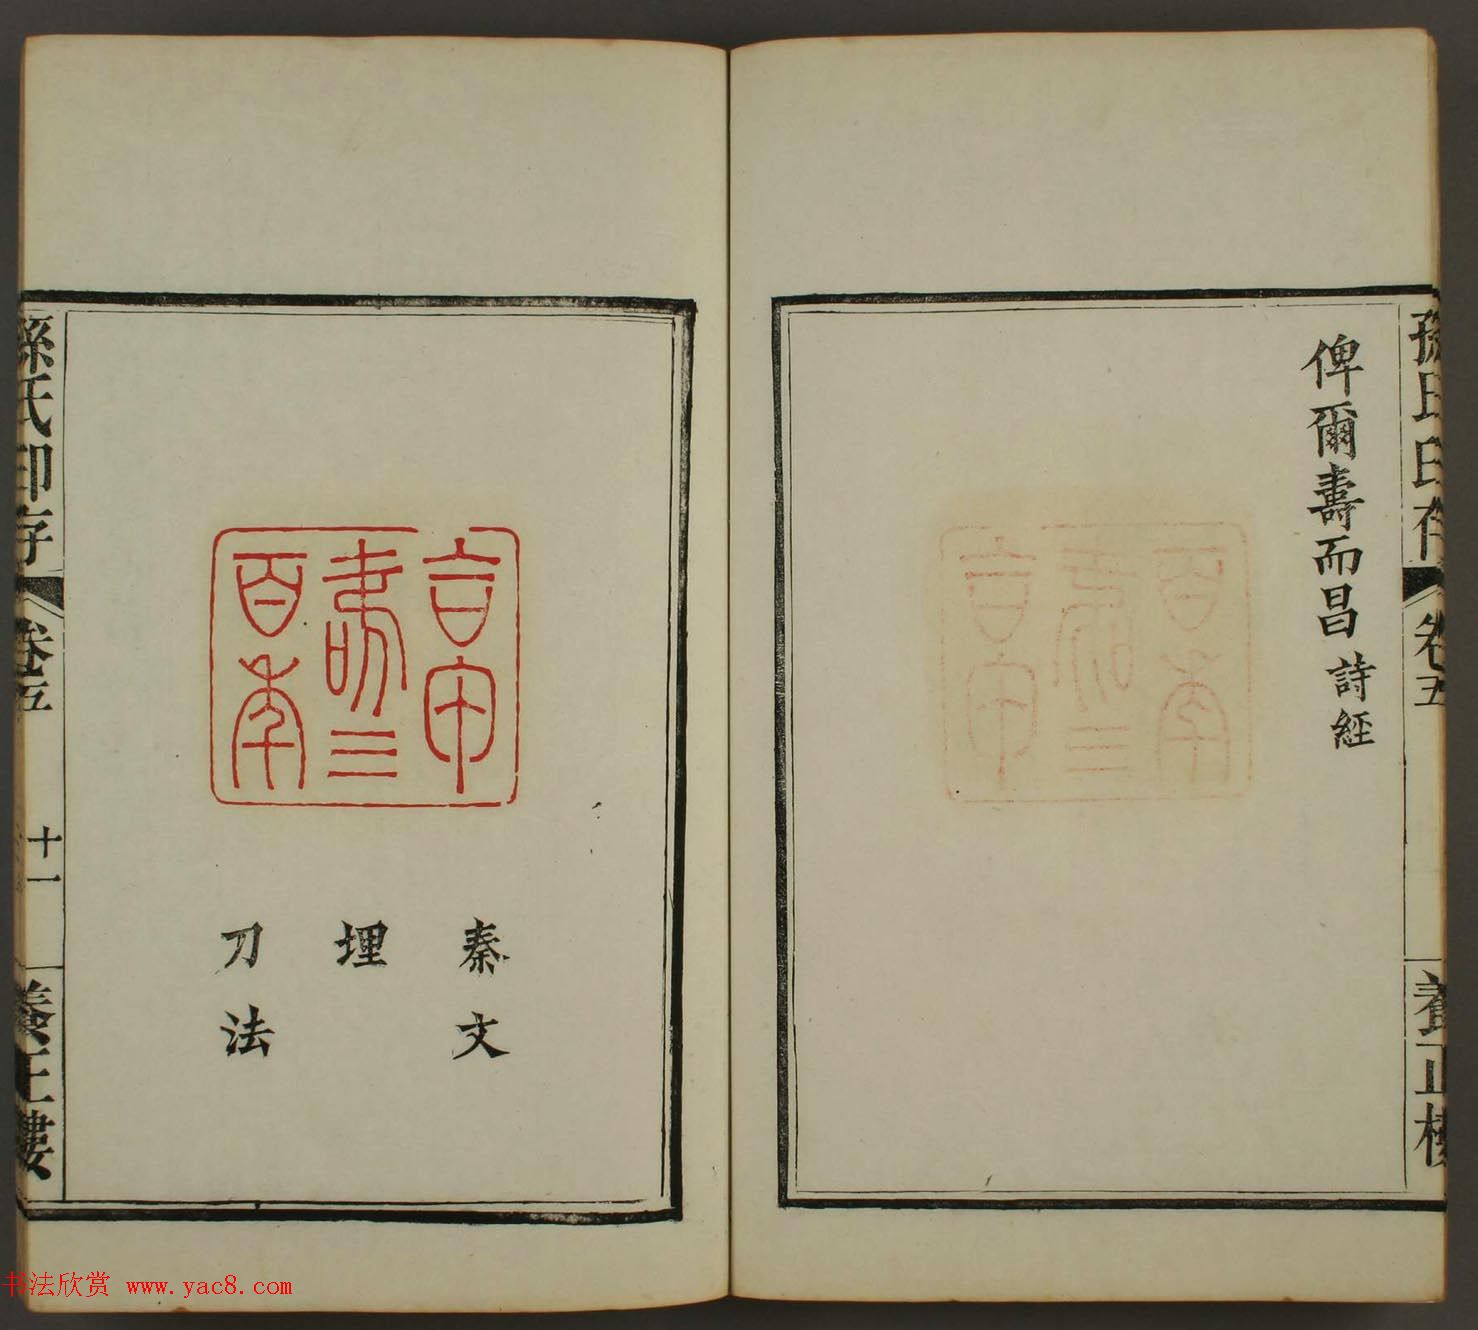 孫氏印存 卷五 養正樓
俾爾壽而昌 詩經
三
百年
秦文
埋
刀法
孫氏印存 卷五 十一 養正樓
书法欣赏 www.yac8.com